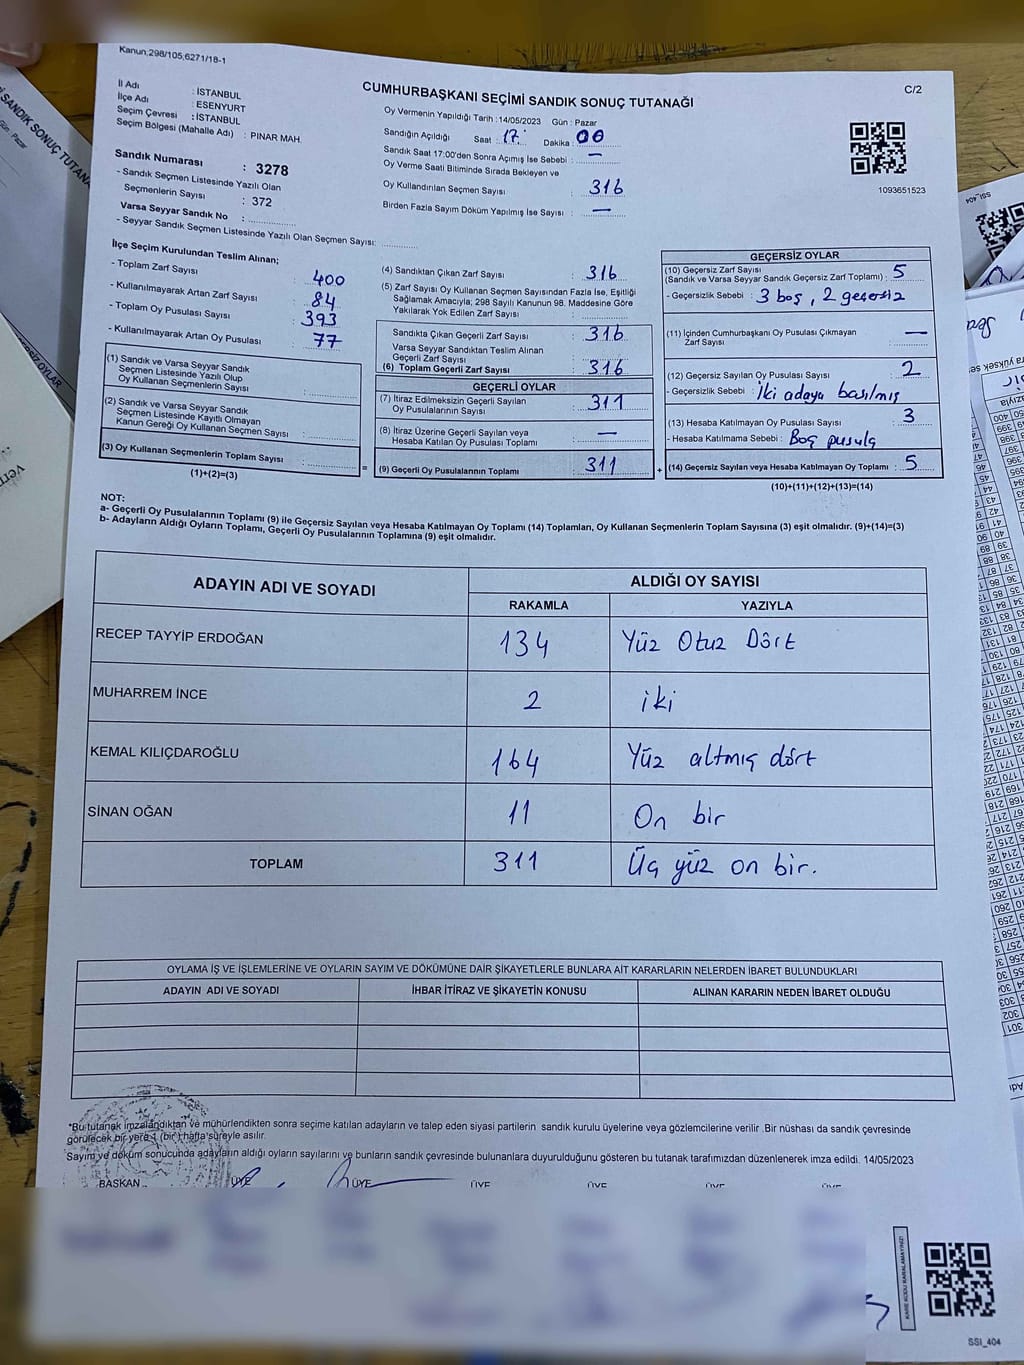 Kanun,298/105,6271/18-1
C/2
CUMHURBAŞKANI SEÇİMİ SANDIK SONUÇ TUTANAĞI
İl Adı : İSTANBUL
İlçe Adı : ESENYURT
Seçim Çevresi : İSTANBUL
Seçim Bölgesi (Mahalle Adı) : PINAR MAH.
Sandık Numarası : 3278
- Sandık Seçmen Listesinde Yazılı Olan
Seçmenlerin Sayısı : 372
Varsa Seyyar Sandık No :
- Seyyar Sandık Seçmen Listesinde Yazılı Olan Seçmen Sayısı:
Oy Vermenin Yapıldığı Tarih :14/05/2023 Gün : Pazar
Sandığın Açıldığı Saat : 17 Dakika : 00
Sandık Saat 17:00'den Sonra Açımış İse Sebebi : —
Oy Verme Saati Bitiminde Sırada Bekleyen ve
Oy Kullandırılan Seçmen Sayısı : 316
Birden Fazla Sayım Döküm Yapılmış İse Sayısı : —
1093651523
İlçe Seçim Kurulundan Teslim Alınan;
- Toplam Zarf Sayısı : 400
- Kullanılmayarak Artan Zarf Sayısı : 84
- Toplam Oy Pusulası Sayısı : 393
- Kullanılmayarak Artan Oy Pusulası : 77
(1) Sandık ve Varsa Seyyar Sandık
Seçmen Listesinde Yazılı Olup
Oy Kullanan Seçmenlerin Sayısı :
(2) Sandık ve Varsa Seyyar Sandık
Seçmen Listesinde Kayıtlı Olmayan
Kanun Gereği Oy Kullanan Seçmen Sayısı :
(3) Oy Kullanan Seçmenlerin Toplam Sayısı :
(1)+(2)=(3)
(4) Sandıktan Çıkan Zarf Sayısı : 316
(5) Zarf Sayısı Oy Kullanan Seçmen Sayısından Fazla İse, Eşitliği
Sağlamak Amacıyla; 298 Sayılı Kanunun 98. Maddesine Göre
Yakılarak Yok Edilen Zarf Sayısı :
Sandıkta Çıkan Geçerli Zarf Sayısı : 316
Varsa Seyyar Sandıktan Teslim Alınan
Geçerli Zarf Sayısı :
(6) Toplam Geçerli Zarf Sayısı : 316
GEÇERLİ OYLAR
(7) İtiraz Edilmeksizin Geçerli Sayılan
Oy Pusulalarının Sayısı : 311
(8) İtiraz Üzerine Geçerli Sayılan veya
Hesaba Katılan Oy Pusulası Toplamı : —
= (9) Geçerli Oy Pusulalarının Toplamı : 311 +
GEÇERSİZ OYLAR
(10) Geçersiz Zarf Sayısı
(Sandık ve Varsa Seyyar Sandık Geçersiz Zarf Toplamı) : 5
- Geçersizlik Sebebi : 3 boş, 2 geçersiz
(11) İçinden Cumhurbaşkanı Oy Pusulası Çıkmayan
Zarf Sayısı : —
(12) Geçersiz Sayılan Oy Pusulası Sayısı : 2
- Geçersizlik Sebebi : İki adaya basılmış
(13) Hesaba Katılmayan Oy Pusulası Sayısı : 3
- Hesaba Katılmama Sebebi : Boş pusula
(14) Geçersiz Sayılan veya Hesaba Katılmayan Oy Toplamı : 5
(10)+(11)+(12)+(13)=(14)
NOT:
a- Geçerli Oy Pusulalarının Toplamı (9) ile Geçersiz Sayılan veya Hesaba Katılmayan Oy Toplamı (14) Toplamları, Oy Kullanan Seçmenlerin Toplam Sayısına (3) eşit olmalıdır. (9)+(14)=(3)
b- Adayların Aldığı Oyların Toplamı, Geçerli Oy Pusulalarının Toplamına (9) eşit olmalıdır.
ADAYIN ADI VE SOYADI ALDIĞI OY SAYISI
RAKAMLA YAZIYLA
RECEP TAYYİP ERDOĞAN 134 Yüz Otuz Dört
MUHARREM İNCE 2 iki
KEMAL KILIÇDAROĞLU 164 Yüz altmış dört
SİNAN OĞAN 11 On bir
TOPLAM 311 Üç yüz on bir.
OYLAMA İŞ VE İŞLEMLERİNE VE OYLARIN SAYIM VE DÖKÜMÜNE DAİR ŞİKAYETLERLE BUNLARA AİT KARARLARIN NELERDEN İBARET BULUNDUKLARI
ADAYIN ADI VE SOYADI İHBAR İTİRAZ VE ŞİKAYETİN KONUSU ALINAN KARARIN NEDEN İBARET OLDUĞU
*Bu tutanak imzalandıktan ve mühürlendikten sonra seçime katılan adayların ve talep eden siyasi partilerin sandık kurulu üyelerine veya gözlemcilerine verilir .Bir nüshası da sandık çevresinde
görülecek bir yere 1 (bir) hafta süreyle asılır.
Sayım ve döküm sonucunda adayların aldığı oyların sayılarını ve bunların sandık çevresinde bulunanlara duyurulduğunu gösteren bu tutanak tarafımızdan düzenlenerek imza edildi. 14/05/2023
BAŞKAN ÜYE ÜYE ÜYE ÜYE ÜYE ÜYE
KARE KODU KARALAMAYINIZ!
SSI_404